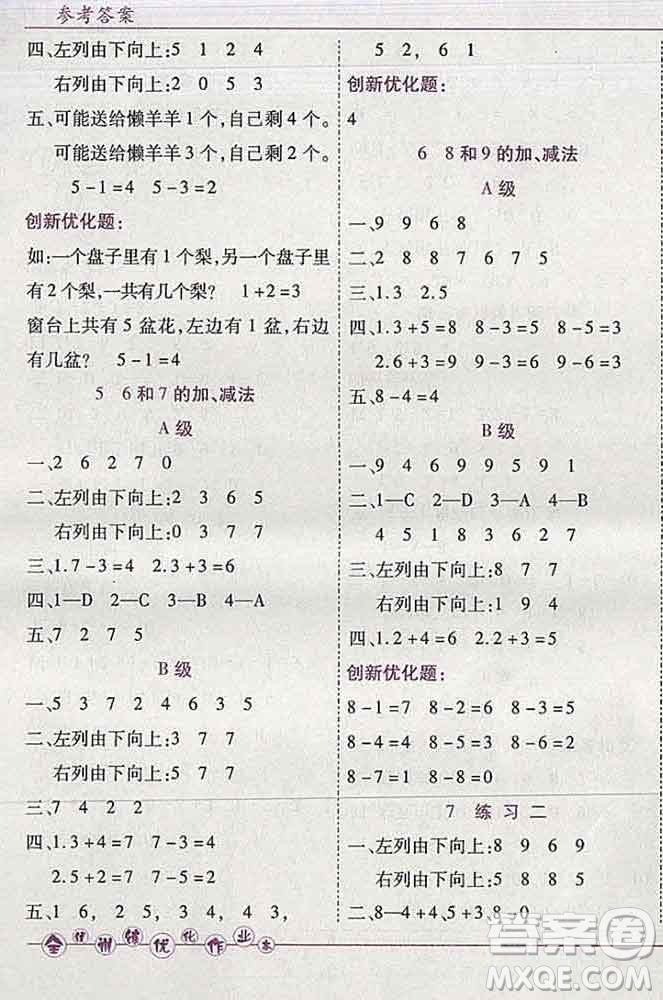 参考答案
四、左列由下向上:5 1 2 4
右列由下向上:2 0 5 3
五、可能送给懒羊羊1个,自己剩4个。
可能送给懒羊羊3个,自己剩2个。
5-1=4 5-3=2
创新优化题:
如:一个盘子里有1个梨,另一个盘子里
有2个梨,一共有几个梨? 1+2=3
窗台上共有5盆花,左边有1盆,右边
有几盆? 5-1=4
5 6和7的加、减法
A级
一、2 6 2 7 0
二、左列由下向上:2 3 6 5
右列由下向上:0 3 7 7
三、1.7-3=4 2.3+3=6
四、1—D 2—C 3—B 4—A
五、7 2 7 5
B级
一、5 3 7 2 4 6 3 5
二、左列由下向上:3 7 7
右列由下向上:5 7 7
三、7 4 2 2
四、1.3+4=7 7-3=4
2.5+2=7 7-5=2
五、1 6, 2 5, 3 4, 4 3,
5 2, 6 1
创新优化题:
4
6 8和9的加、减法
A级
一、9 9 6 8
二、2 8 8 7 6 7 5
三、1.3 2.5
四、1.3+5=8 8-3=5 8-5=3
2.6+3=9 9-3=6 9-6=3
五、8-4=4
B级
一、9 4 6 9 9 5 9 1
二、1—C 2—A 3—D 4—B
4 5 1 8 3 6 2 7
三、左列由下向上:8 7 7
右列由下向上:1 9 4
四、1.2+4=6 2.2+3=5
创新优化题:
8-1=7 8-2=6 8-3=5
8-4=4 8-5=3 8-6=2
8-7=1 8-8=0
7 练习二
一、左列由下向上:8 9 6 9
右列由下向上:5 8 8 5
二、8-4+4,5 9,8-0
全程训练优化作业本
答案圈
MXQE.COM